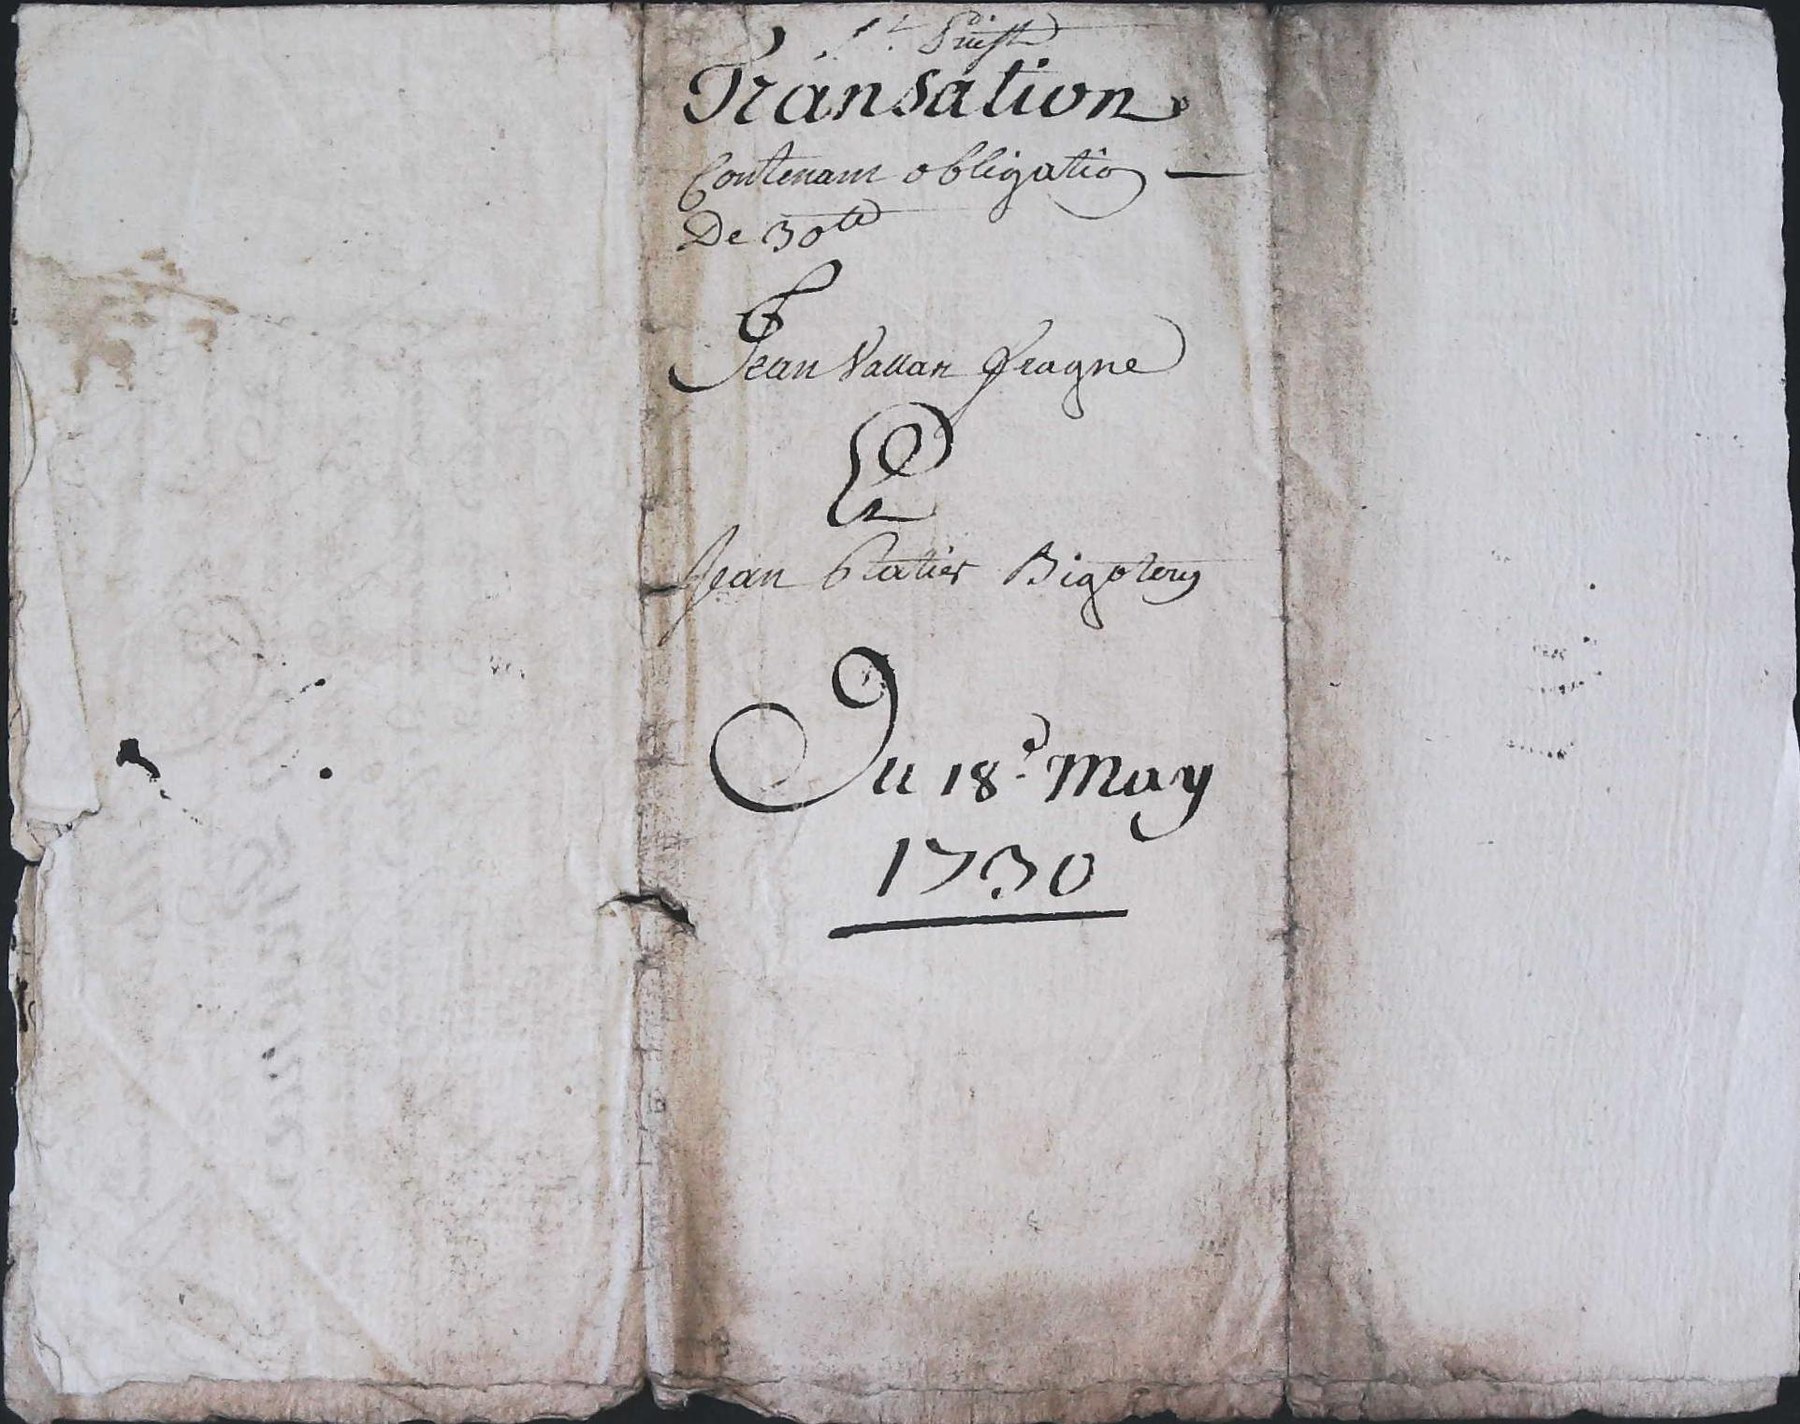 Transation
Contenant obligatio
De 30ᵗᵗ
Jean Vallan
Et
Jean Ratier Bigotery
Du 18ᵉ May
1730